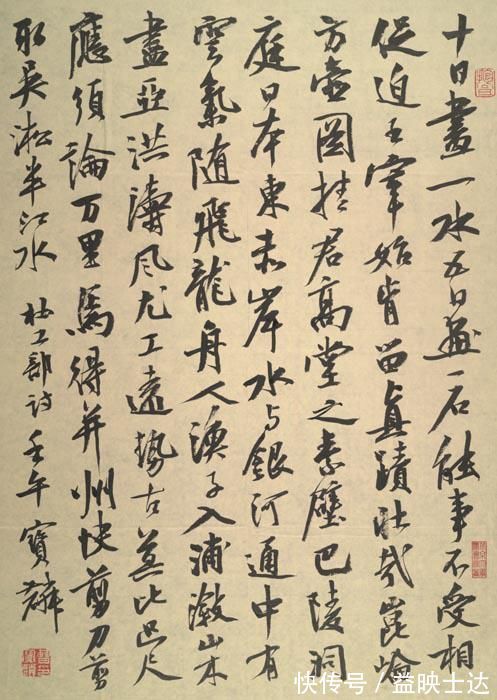 十日畫一水五日画一石能事不受相
促迫王宰始肯留真蹟壯哉崑崙
方壺圖挂君高堂之素壁巴陵洞
庭日本東赤岸水与銀河通中有
雲氣随飛龍舟人漁子入浦漵山木
盡亞洪濤風尤工遠勢古莫比咫尺
應須論万里焉得并州快剪刀剪
取吳淞半江水 杜工部詩 壬午寶麟
快传号/益映士达